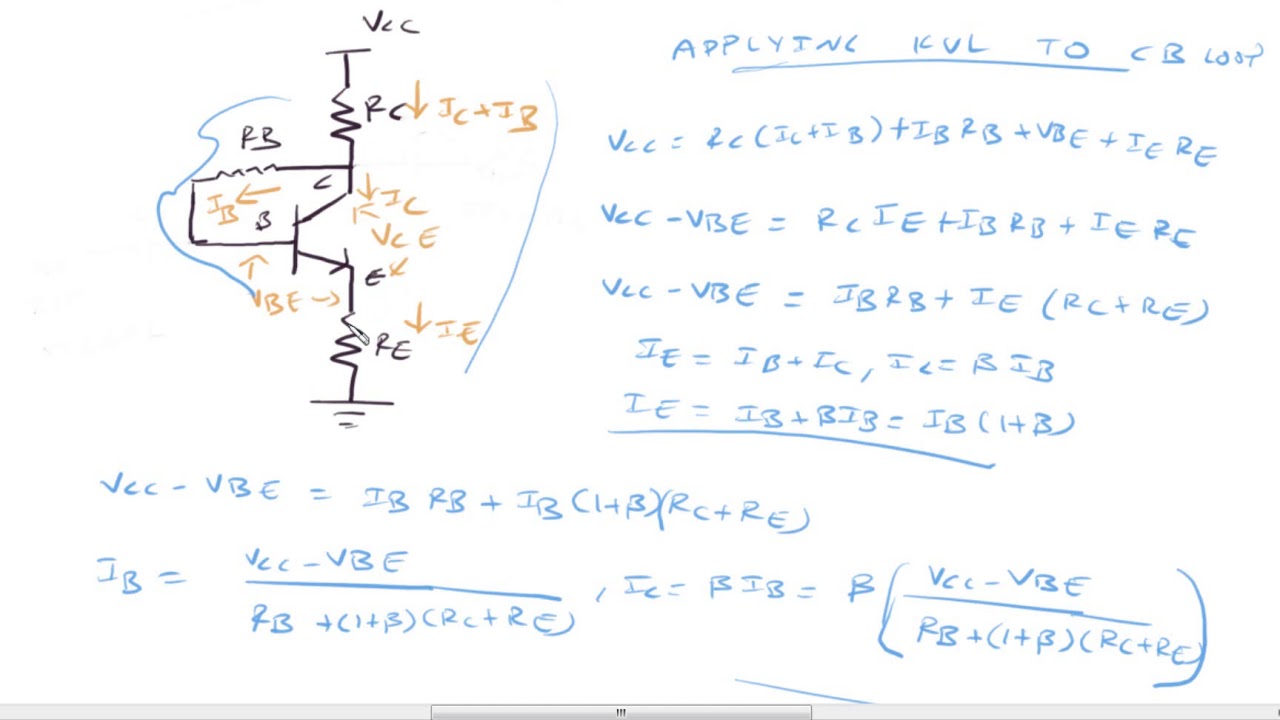 VCC
RC ↓ IC+IB
RB
C
IB ←
B
↓ IC
VCE
E
VBE →
↓ IE
RE
APPLYING KVL TO CB LOOP
VCC = RC(IC+IB)+IBRB+VBE+IERE
VCC-VBE = RCIE+IBRB+IERE
VCC-VBE = IBRB+IE(RC+RE)
IE = IB+IC, IC= βIB
IE = IB+βIB= IB(1+β)
VCC-VBE = IBRB+IB(1+β)(RC+RE)
IB = VCC-VBE / RB+(1+β)(RC+RE), IC= βIB= β(VCC-VBE / RB+(1+β)(RC+RE))